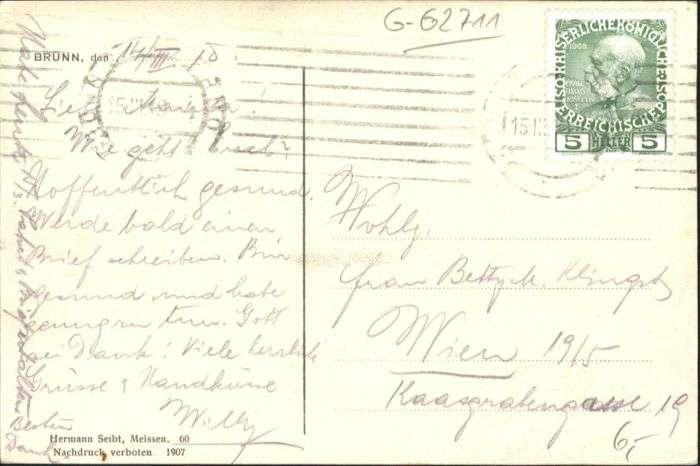 G-62711
BRÜNN, den 14/III 10
Liebe Mama!
Wie geht's Euch?
Hoffentlich gesund.
Werde bald einen
Brief schreiben. Bin
gesund und habe
genug zu tun. Gott
sei Dank! Viele herzliche
Grüsse & Handküsse
Willy
Habe heute
erhalten
Besten
Dank
Hermann Seibt, Meissen. 60
Nachdruck verboten 1907
KAISERLICHE KÖNIGLICHE
ÖSTERREICHISCHE
1908
5 HELLER 5
Wohlg.
Frau Betty M. Klingst
Wien 19/5
Kaasgrabengasse 19
6,-